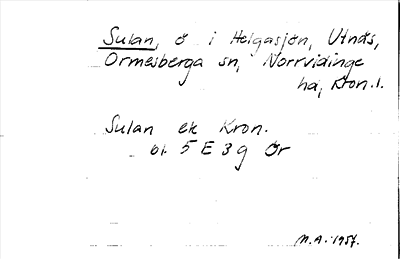 Sulan, ö i Helgasjön, Utnäs,
Ormesberga sn, Norrvidinge
hd, Kron. l.
Sulan ek Kron.
bl. 5 E 3 g Ör
M.A. 1957.